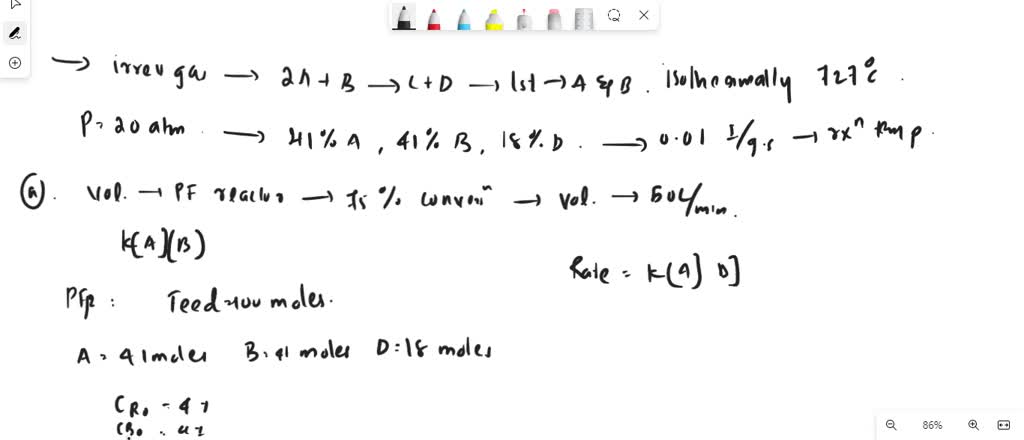 → irrev gas → 2A + B → C + D → 1st → A & B. isothermally 727°c.
P = 20 atm. → 41% A, 41% B, 18% D. → 0.01 /g.s → rxⁿ temp.
(a). Vol. → PF reactor → 75% conversⁿ → Vol. → 50L/min.
k[A][B]
Rate = k[A] B]
PFR: Feed = 100 moles.
A = 41 moles B: 41 moles D: 18 moles
CRo = 4
CBo = 4
86%